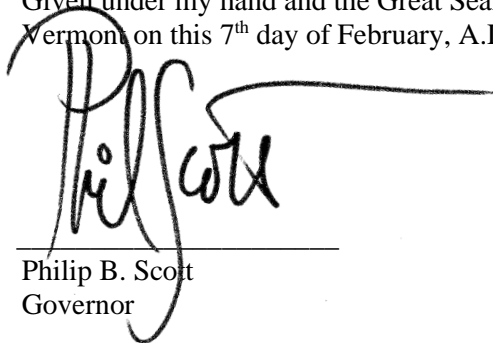 Given under my hand and the Great Sea
Vermont on this 7th day of February, A.
Phil Scott
Philip B. Scott
Governor